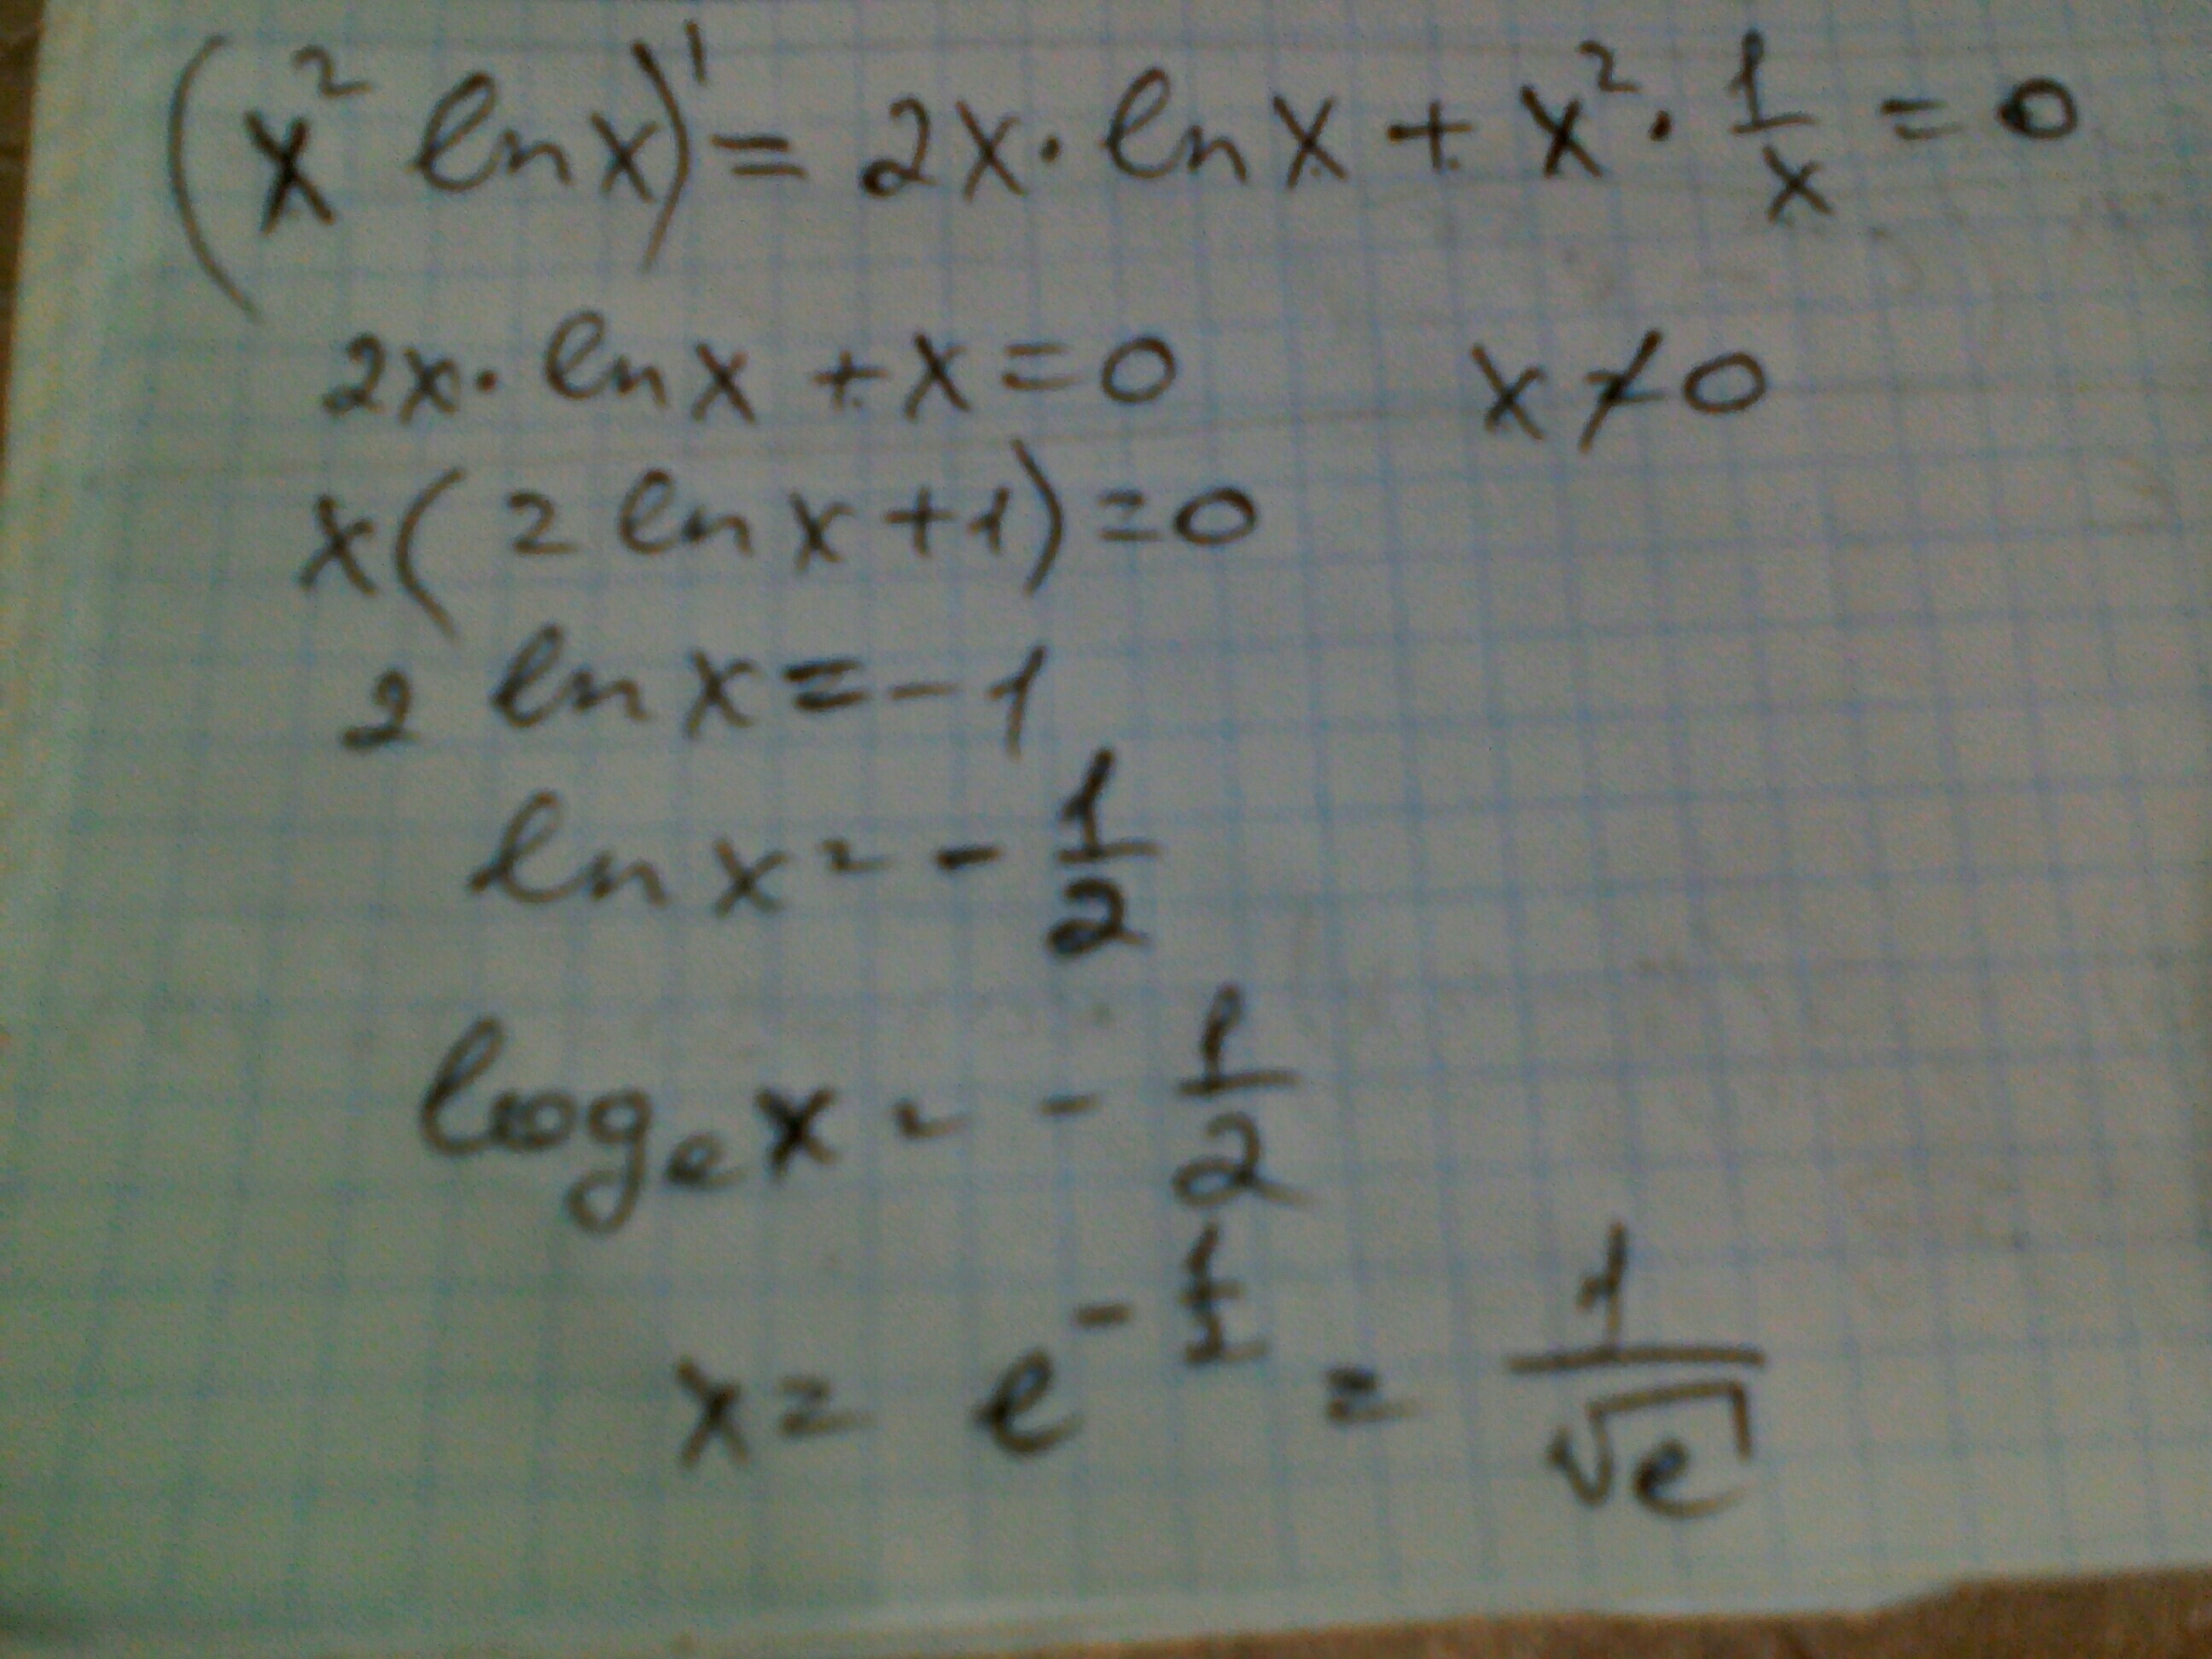 (x² ln x)' = 2x · ln x + x² · 1/x = 0
2x · ln x + x = 0 x ≠ 0
x(2 ln x + 1) = 0
2 ln x = -1
ln x = - 1/2
logₑ x = - 1/2
x = e^(-1/2) = 1/√e